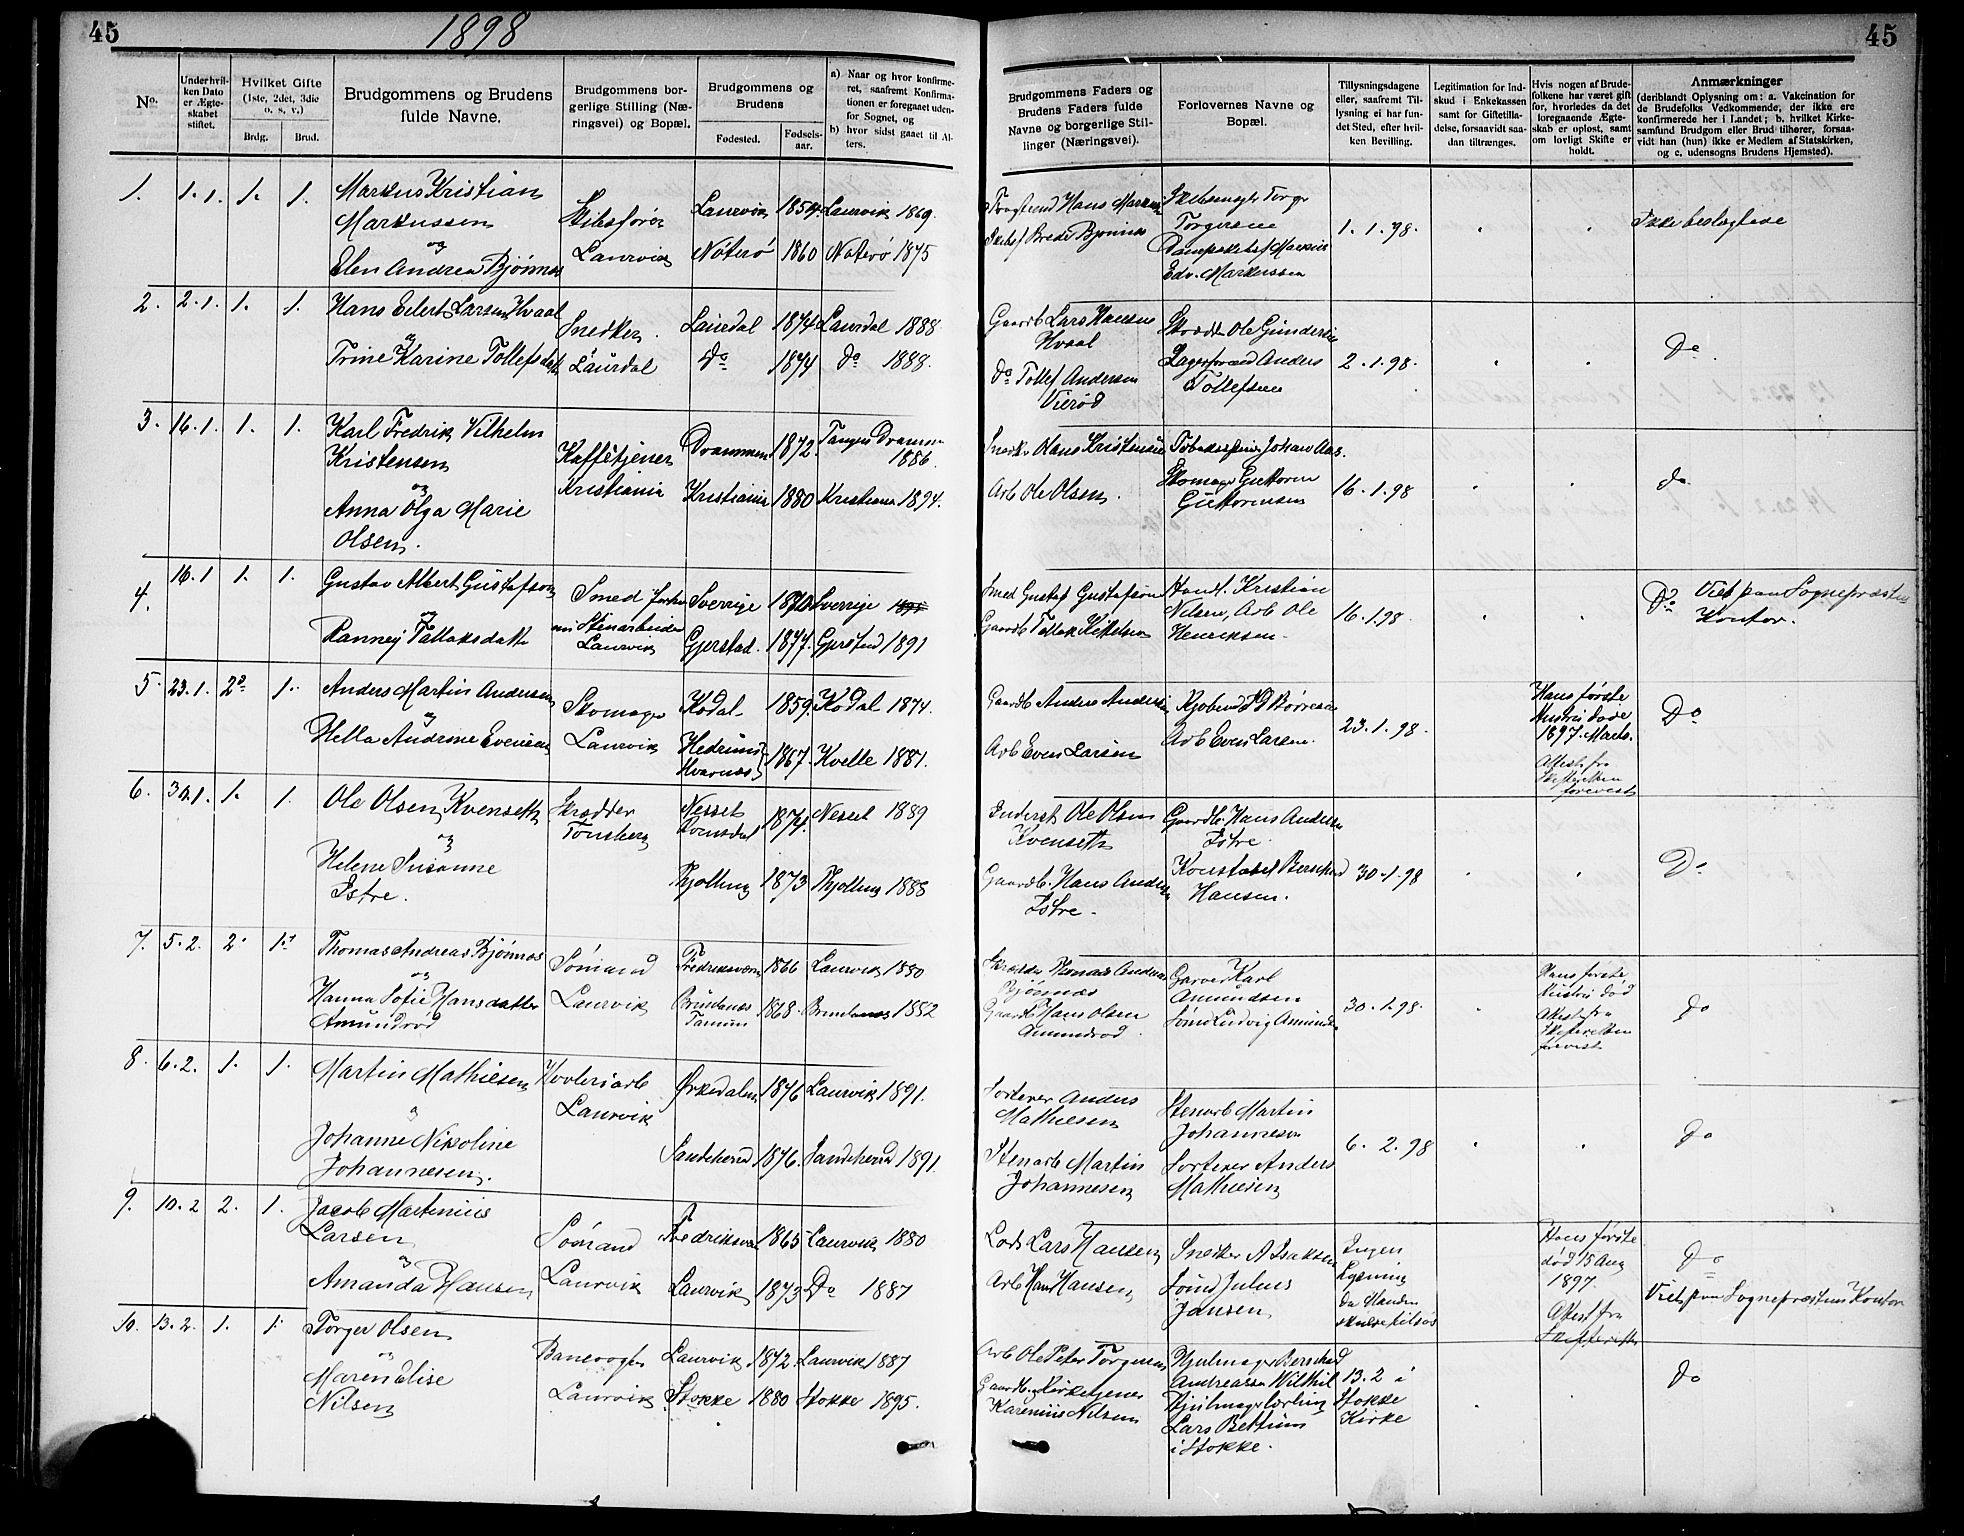 45
1898
45
No.
Underhvil-
ken Dato
er Ægte-
skabet
stiftet.
Hvilket Gifte
(1ste, 2det, 3die
o. s. v.)
Brdg.
Brud.
Brudgommens og Brudens
fulde Navne.
Brudgommens bor-
gerlige Stilling (Næ-
ringsvei) og Bopæl.
Brudgommens og
Brudens
Fødested.
Fødsels-
aar.
a) Naar og hvor konfirme-
ret, saafremt Konfirma-
tionen er foregaaet uden-
for Sognet, og
b) hvor sidst gaaet til Al-
ters.
Brudgommens Faders og
Brudens Faders fulde
Navne og borgerlige Stil-
linger (Næringsvei).
Forlovernes Navne og
Bopæl.
Tillysningsdagene
eller, saafremt Til-
lysning ei har fun-
det Sted, efter hvil-
ken Bevilling.
Legitimation for Ind-
skud i Enkekassen
samt for Giftetilla-
delse, forsaavidt saa-
dan tiltrænges.
Hvis nogen af Brude-
folkene har været gift
før, hvorledes da det
foregaaende Ægte-
skab er opløst, samt
om lovligt Skifte er
holdt.
Anmærkninger
(deriblandt Oplysning om: a. Vakcination for
de Brudefolks Vedkommende, der ikke ere
konfirmerede her i Landet; b. hvilket Kirke-
samfund Brudgom eller Brud tilhører, forsaa-
vidt han (hun) ikke er Medlem af Statskirken,
og c. udensogns Brudens Hjemsted).
1. 1.1. 1. 1. Markus Kristian
Markussen
og
Elen Andrea Bjönnes
Skibsförer
Laurvik
Laurvik 1854 Laurvik 1869.
Nöterö 1860 Nöterö 1875
Hans Markus
Torger
Torgersen
Edv. Markussen
1. 1. 98.
Ikke beslægtede
2. 2.1. 1. 1. Hans Eilert Larsen Hvaal
og
Trine Karine Tollefsdatt
Snedker
Laurdal
Laurdal 1874 Laurdal 1888
Do 1874 do 1888.
Gaardb Lars Hansen
Hvaal
Do Tollef Andersen
Vieröd
Ole Gundersen
Anders
Tollefsen
2. 1. 98.
Do
3. 16.1. 1. 1. Karl Fredrik Vilhelm
Kristensen
og
Anna Olga Marie
Olsen.
Kaffetjener
Kristiania
Drammen 1872. Tangen Drammen
1886.
Kristiania 1880 Kristiania 1894.
Snedk Hans Kristensen
Arb Ole Olsen.
Johan Aas.
Skomager Guttorm
Guttormsen
16. 1. 98
do
4. 16.1 1. 1. Gustav Albert Gustafson
og
Ranney Tallaksdatt
Smed
Stenarbeider
Laurvik
Sverrige 1870 Sverrige
Gjerstad. 1877. Gjerstad 1891
Smed Gustaf Gustafson
Gaardb Tallak Kittelsen
Handl. Kristian
Nilsen, Arb Ole
Henriksen.
16. 1. 98
Do Viet paa Sognepræstens
Kontor.
5. 23.1. 2. 1. Anders Martin Andersen
og
Hella Andrine Evensen
Skomager
Laurvik
Kodal 1859. Kodal 1874.
Hedrum
Hvarnes 1867. Kvelle 1881.
Gaardb Anders Andersen
Arb Even Larsen
Börresen
Arb Even Larsen.
23. 1. 98.
Hans förste
Hustru döde
1897. Marts.
Attest fra
Skifteretten
forevist
Do
6. 30.1. 1. 1. Ole Olsen Kvenseth
og
Helene Susanne
Istre.
Skrædder
Tönsberg
Nesset
Romsdal 1874. Nesset 1889
Thjölling 1873 Thjölling 1888
Inderst Ole Olsen
Kvenseth
Gaardb. Hans Andersen
Istre.
Gaardb. Hans Andersen
Istre.
Konstabel Bernhard
Hansen.
30. 1. 98
Do
7. 5.2. 2. 1. Thomas Andreas Bjönnes
og
Hanna Sofie Hansdatter
Amundröd
Sömand
Laurvik
Fredriksværn 1866 Laurvik 1880
Brunlanes
Tanum 1868. Brunlanes 1882
Skrædder Thomas Andreas
Bjönnes
Gaardb Hans Olsen
Amundröd
Garver Karl
Amundsen
Sömd Ludvig Amundsen
30. 1. 98.
Hans förste
Hustru död
Attest fra
Skifteretten
forevist
do
8. 6.2. 1. 1. Martin Mathiesen
og
Johanne Nikoline
Johannesen.
Hövleriarb
Laurvik
Örkedalen 1876 Laurvik 1891.
Sandeherred 1876. Sandeherred 1891.
Sorterer Anders
Mathiesen
Stenarb Martin
Johannesen
Stenarb Martin
Johannesen
Sorterer Anders
Mathiesen
6. 2. 98
do
9. 10.2 2. 1. Jacob Martinius
Larsen
og
Amanda Hansen
Sömand
Laurvik
Fredriksværn 1865 Laurvik 1880
Laurvik 1873 Do 1887
Lods Lars Hansen
Arb Hans Hansen
Snedker A Isaksen
Sömd Julius
Jansen
Ingen
Lysning
da Manden
skulde tilsös
Hans förste
död 15 Aug
1897.
Attest fra
Skifteretten
Do
Viet paa Sognepræstens Kontor
10. 13.2. 1. 1. Torger Olsen
og
Maren Elise
Nilsen
Banevogter
Laurvik
Laurvik 1872. Laurvik 1887
Stokke 1880 Stokke 1895.
Arb Ole Peter Torgersen
Gaardb og Kirketjener
Karenius Nilsen
Hjulmager Bernhard
Andreassen
Hjulmagerlærling
Lars Bettum
i Stokke.
13. 2 i
Stokke
Kirke
do